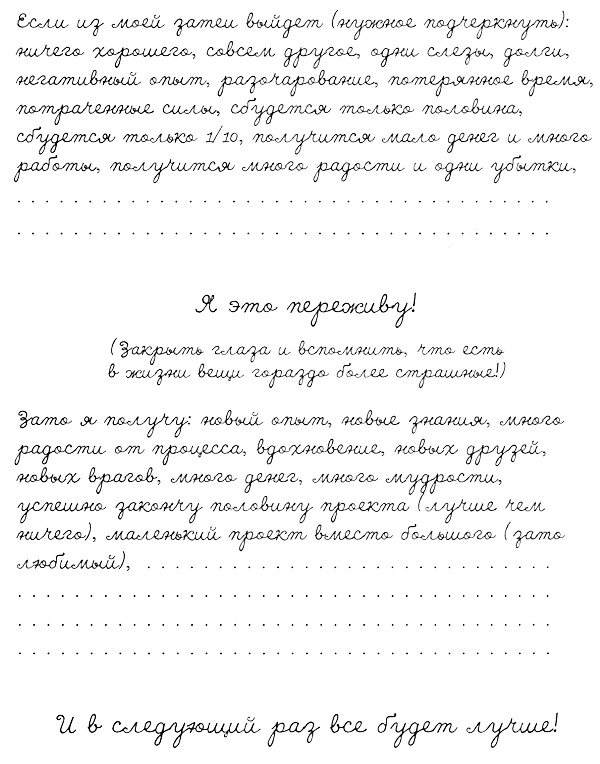 Если из моей затеи выйдет (нужное подчеркнуть):
ничего хорошего, совсем другое, одни слезы, долги,
негативный опыт, разочарование, потерянное время,
потраченные силы, сбудется только половина,
сбудется только 1/10, получится мало денег и много
работы, получится много радости и одни убытки,
. . . . . . . . . . . . . . . . . . . . . . . . . . . . . . . . . . . . . .
. . . . . . . . . . . . . . . . . . . . . . . . . . . . . . . . . . . . . .
Я это переживу!
(Закрыть глаза и вспомнить, что есть
в жизни вещи гораздо более страшные!)
Зато я получу: новый опыт, новые знания, много
радости от процесса, вдохновение, новых друзей,
новых врагов, много денег, много мудрости,
успешно закончу половину проекта (лучше чем
ничего), маленький проект вместо большого (зато
любимый), . . . . . . . . . . . . . . . . . . . . . . . . . . . . .
. . . . . . . . . . . . . . . . . . . . . . . . . . . . . . . . . . . . . .
. . . . . . . . . . . . . . . . . . . . . . . . . . . . . . . . . . . . . .
. . . . . . . . . . . . . . . . . . . . . . . . . . . . . . . . . . . . . .
И в следующий раз все будет лучше!